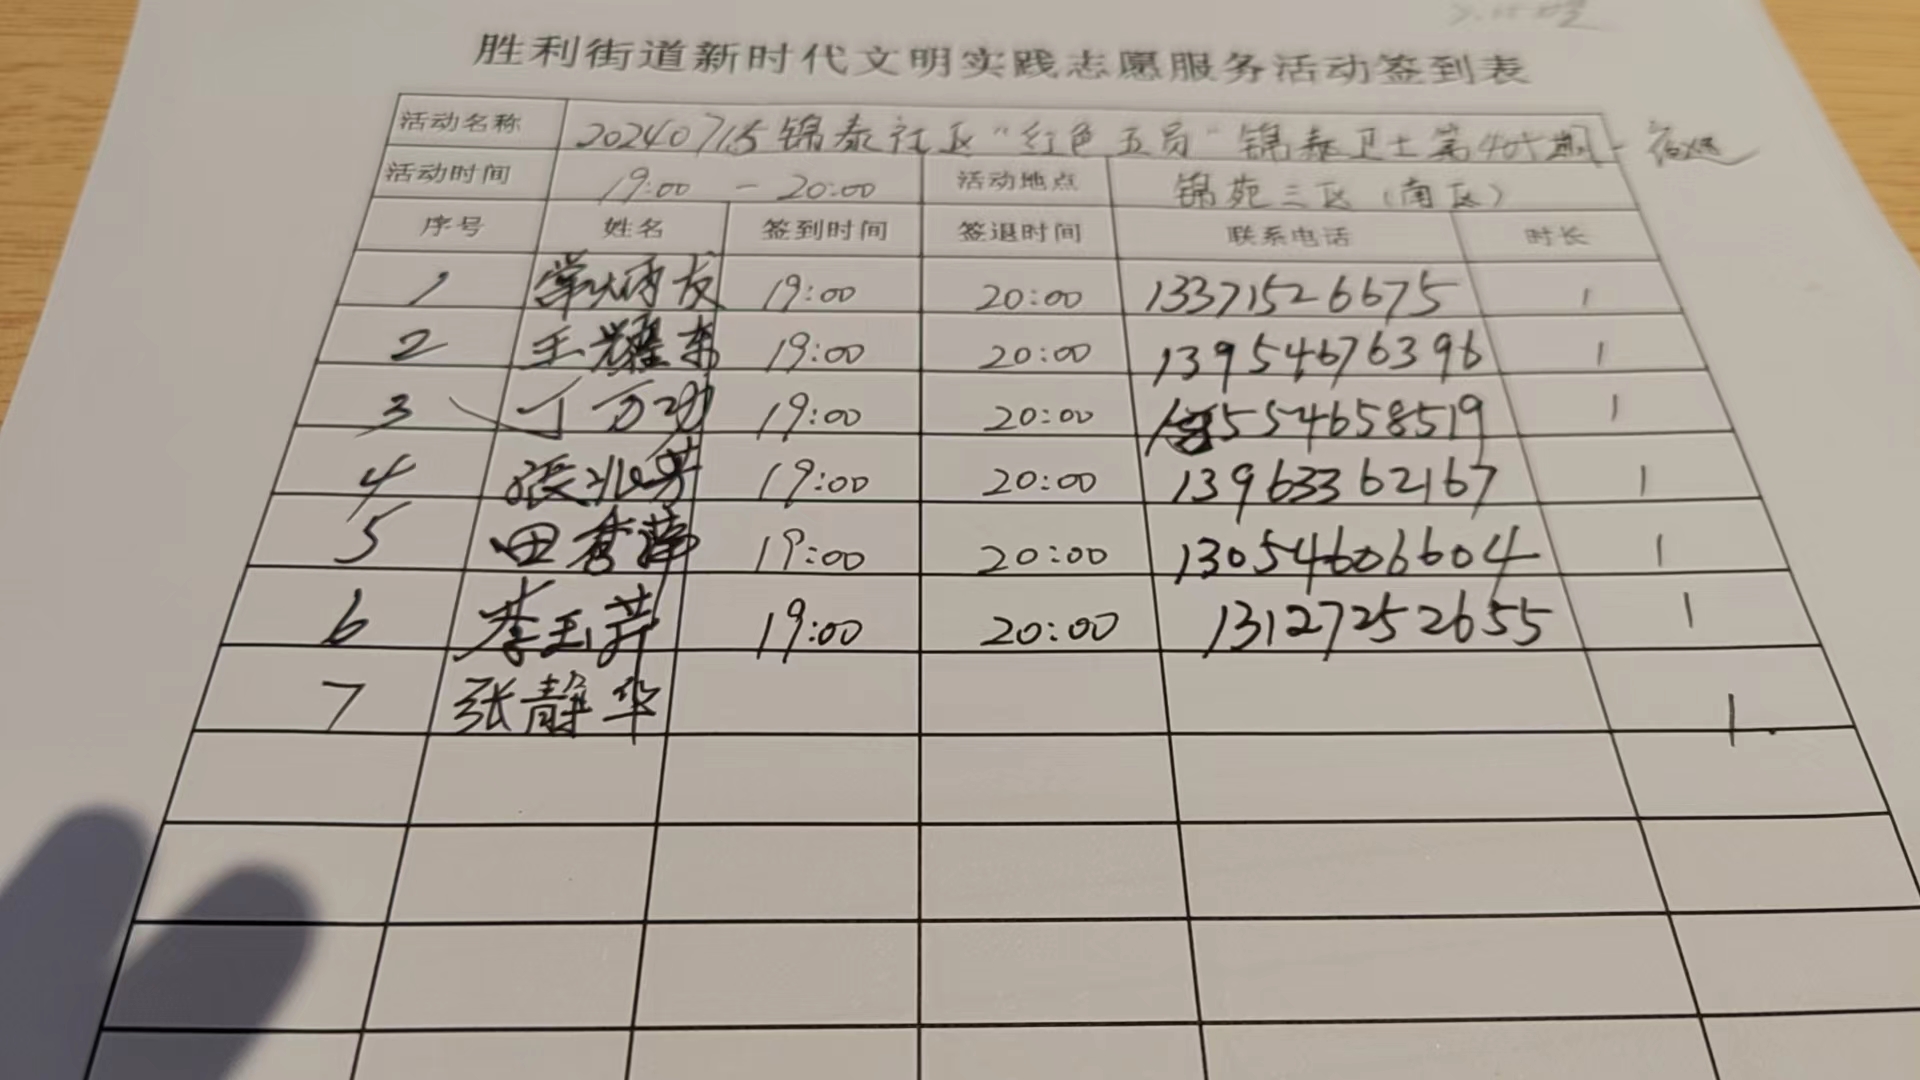 胜利街道新时代文明实践志愿服务活动签到表
活动名称 20240715 锦泰社区“红色五员”锦泰卫士第40次期
活动时间 19:00 - 20:00 活动地点 锦苑三区(南区)
序号 姓名 签到时间 签退时间 联系电话 时长
1 19:00 20:00 13371526675 1
2 王耀东 19:00 20:00 13954676396 1
3 丁万功 19:00 20:00 15554658519 1
4 張兆芳 19:00 20:00 13963362167 1
5 田秀萍 19:00 20:00 13054606604 1
6 李玉芹 19:00 20:00 13127252655 1
7 张静华 1